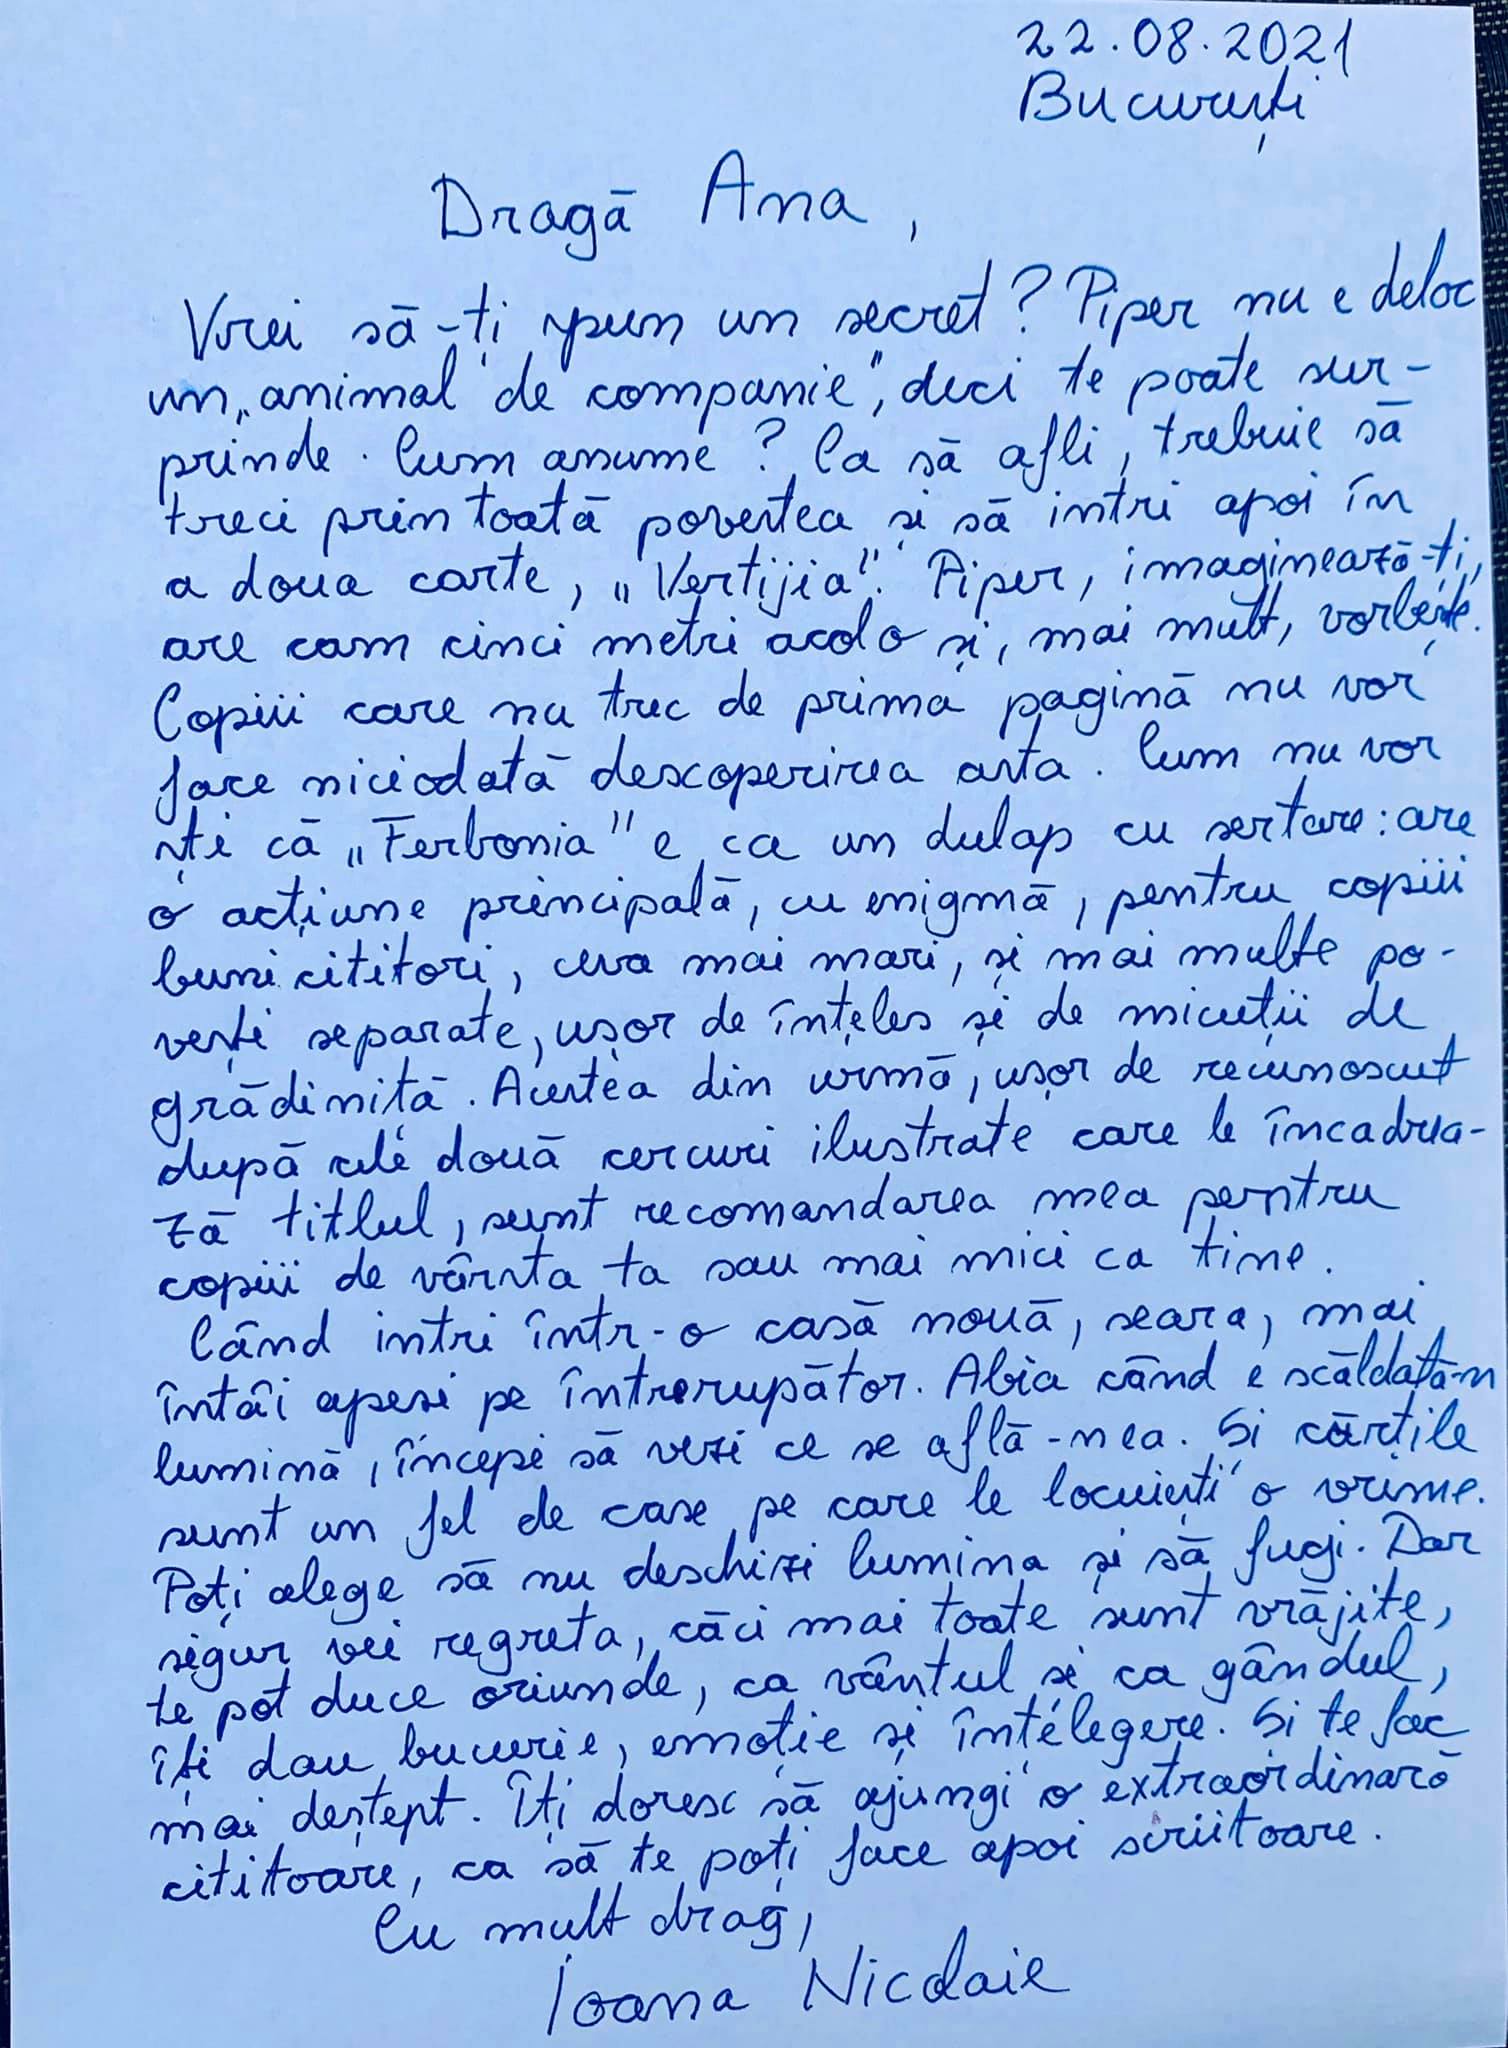 22.08.2021
București
Dragă Ana,
Vrei să-ți spun un secret? Piper nu e deloc
un „animal de companie", deci te poate sur-
prinde. Cum anume? Ca să afli, trebuie să
treci prin toată povestea și să intri apoi în
a doua carte, „Vertijia". Piper, imaginează-ți,
are cam cinci metri acolo și, mai mult, vorbește.
Copiii care nu trec de prima pagină nu vor
face niciodată descoperirea asta. Cum nu vor
ști că „Ferbonia" e ca un dulap cu sertare: are
o acțiune principală, cu enigmă, pentru copiii
buni cititori, ceva mai mari, și mai multe po-
vești separate, ușor de înțeles și de micuții de
grădiniță. Acestea din urmă, ușor de recunoscut
după cele două cercuri ilustrate care le încadrea-
ză titlul, sunt recomandarea mea pentru
copiii de vârsta ta sau mai mici ca tine.
Când intri într-o casă nouă, seara, mai
întâi apesi pe întrerupător. Abia când e scăldată-n
lumină, începi să vezi ce se află-nea. Si cărțile
sunt un fel de case pe care le locuiești o vreme.
Poți alege să nu deschizi lumina și să fugi. Dar
sigur vei regreta, căci mai toate sunt vrăjite,
te pot duce oriunde, ca vântul și ca gândul,
îți dau bucurie, emoție și înțelegere. Si te fac
mai deștept. Îți doresc să ajungi o extraordinară
cititoare, ca să te poți face apoi scriitoare.
Cu mult drag,
Ioana Nicolaie